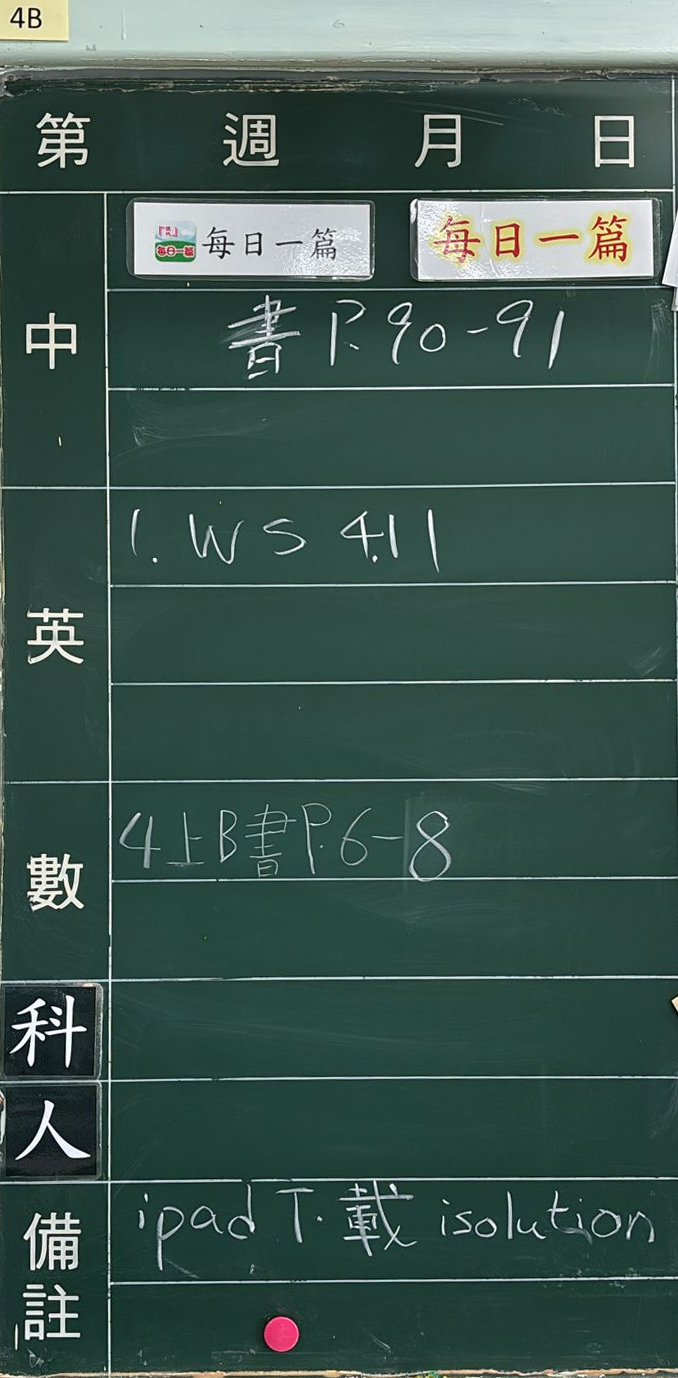 4B
第 週 月 日
每日一篇 每日一篇 每日一篇
中
書 P.90-91
英
1. WS 4.11
數
4上B書P.6-8
科
人
備註
ipad 下載 isolution